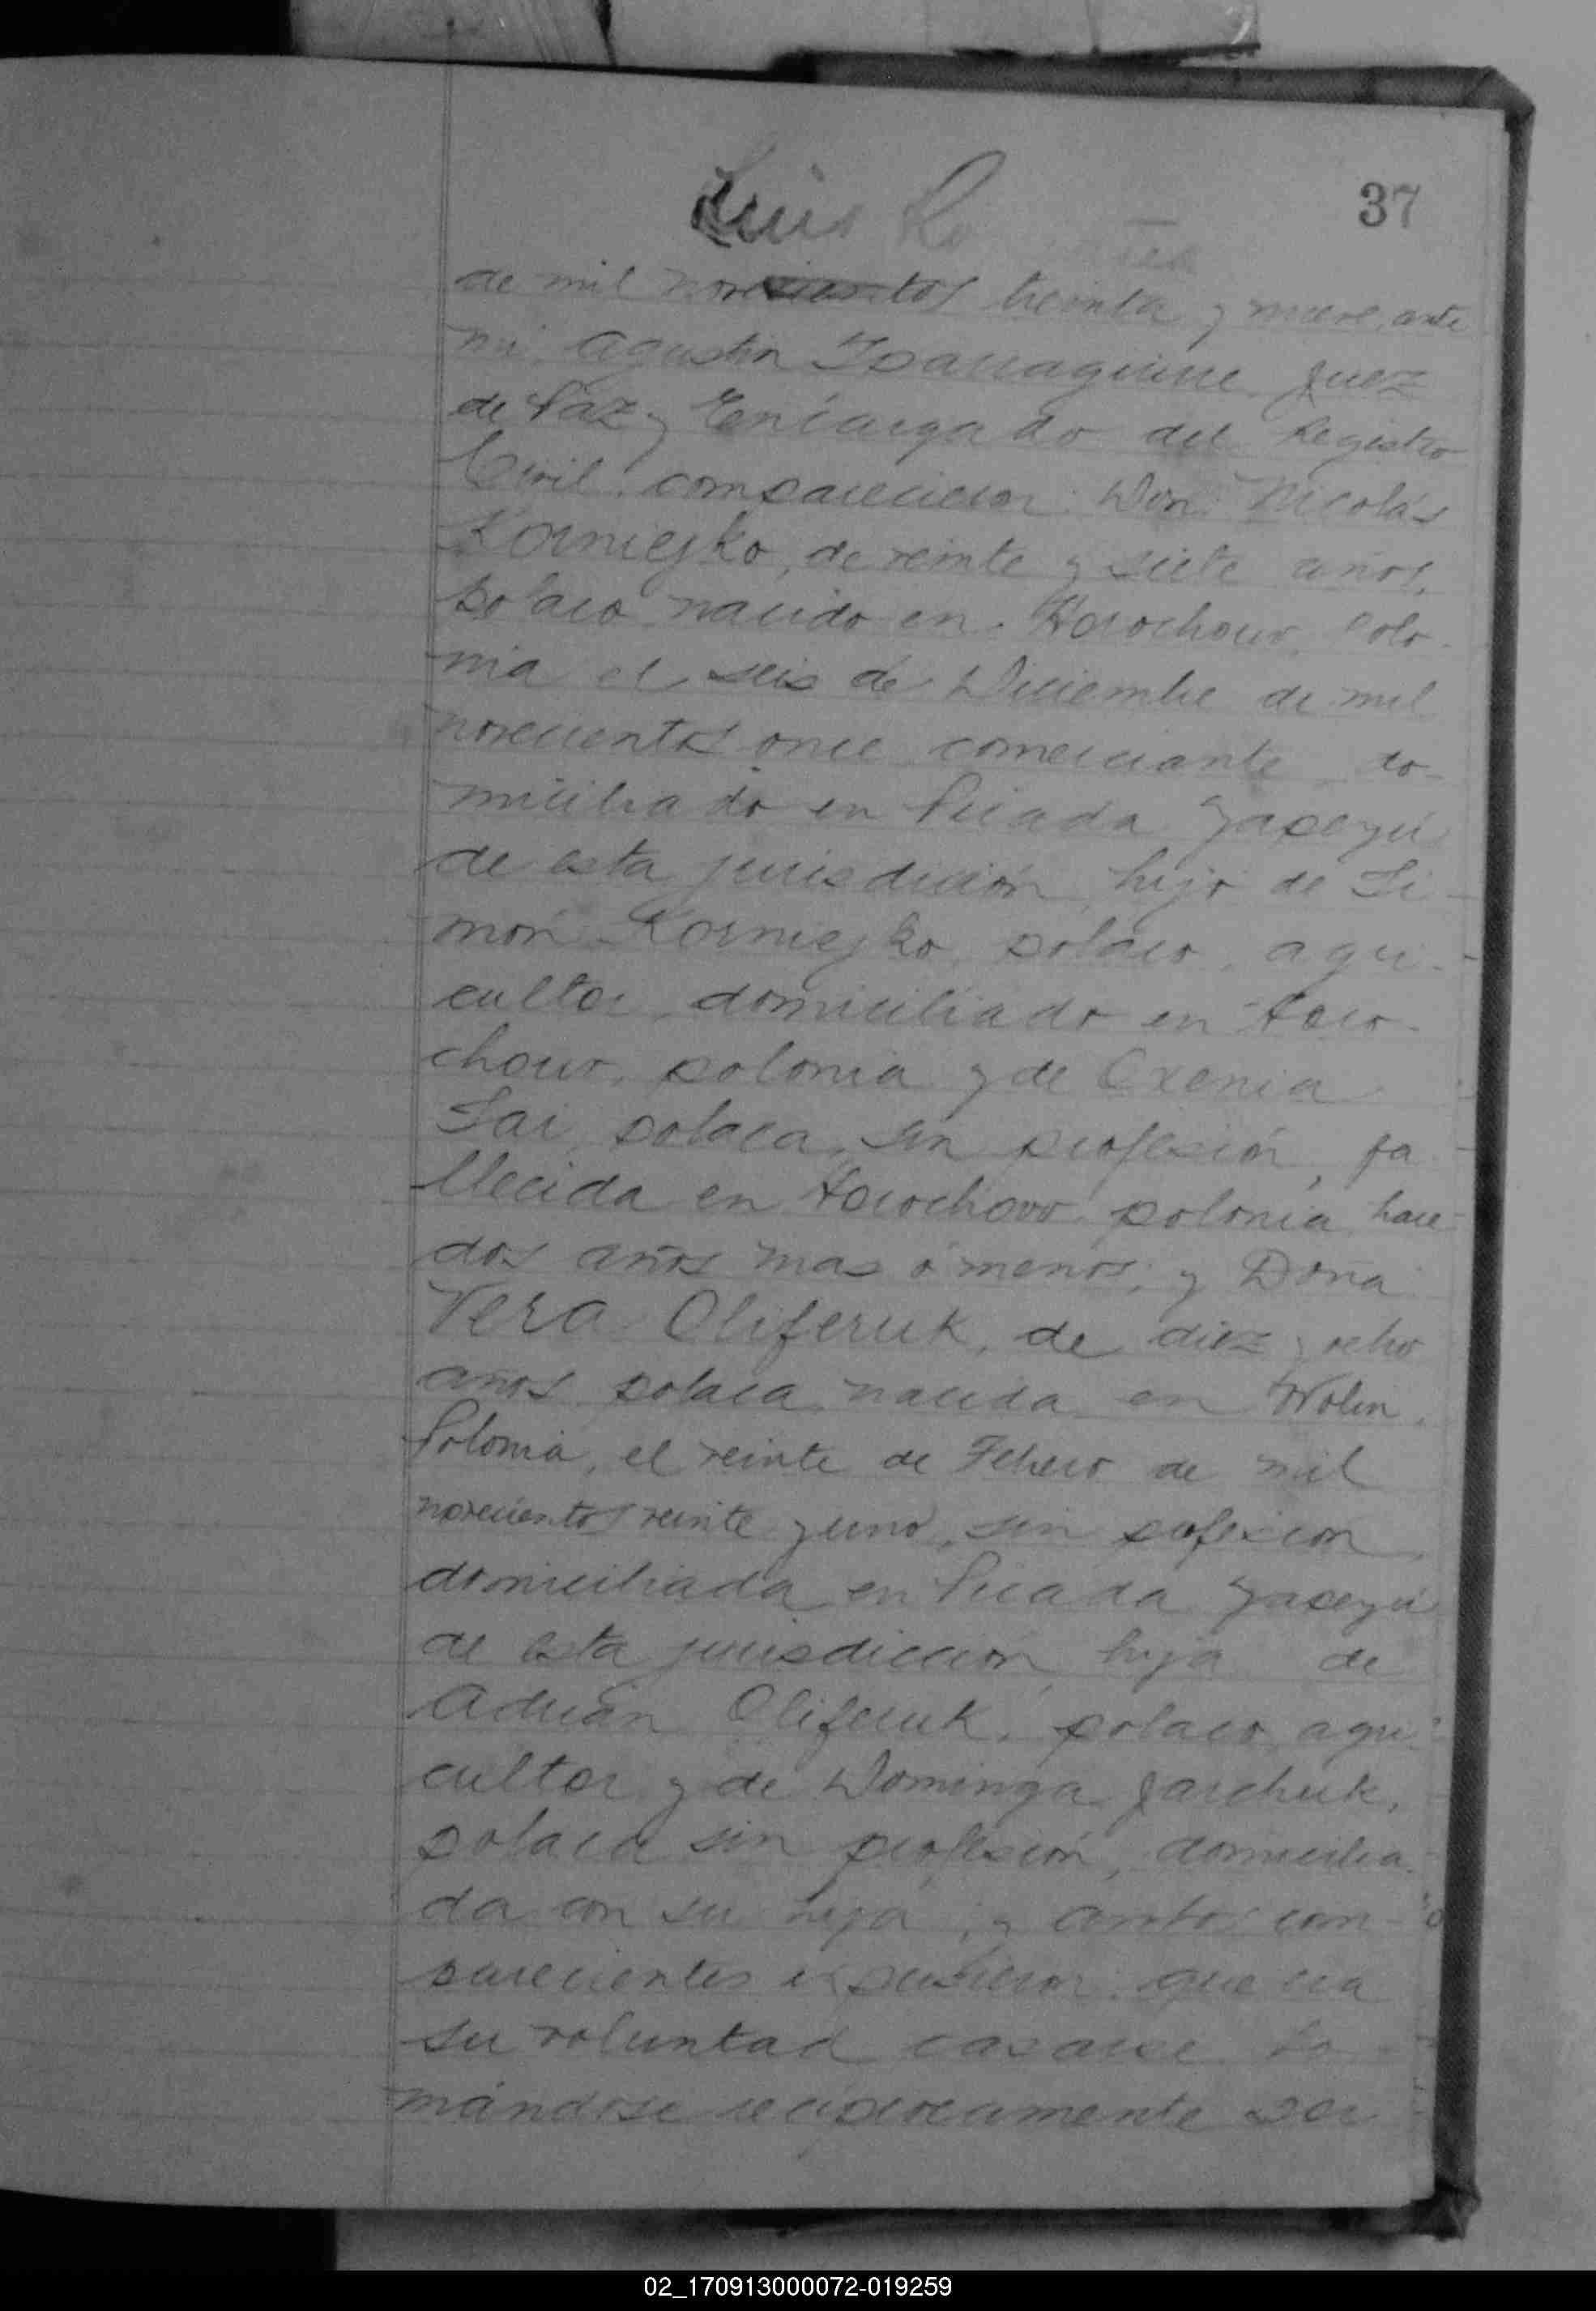 37
Luis
de mil novecientos treinta y nueve, ante
mi Agustin Isarraguirre Juez
de Paz y Encargado del Registro
Civil, comparecieron: Don Nicolás
Korniejko, de veinte y siete años,
polaco nacido en Horochow, Polo-
nia el seis de Diciembre de mil
novecientos once comerciante do-
miciliado en Picada Yapeyú
de esta jurisdicion, hijo de Si-
mon Korniejko, polaco, agri-
cultor, domiciliado en Horo-
chow, polonia y de Oxenia
Sai, polaca, sin profesión, fa-
llecida en Horochow polonia hace
dos años mas ó menos; y Doña
Vera Oliferuk, de diez y ocho
años polaca nacida en Wolin,
Polonia, el veinte de Febrero de mil
novecientos veinte y uno, sin profesion,
domiciliada en Picada Yapeyú
de esta jurisdiccion, hija de
Adrián Oliferuk, polaco, agri-
cultor y de Dominga Jarchuk,
polaca sin profesión, domicilia-
da con su hija; y ambos com-
parecientes expusieron: que era
su voluntad casarse to-
mándose reciprocamente por
02_170913000072-019259